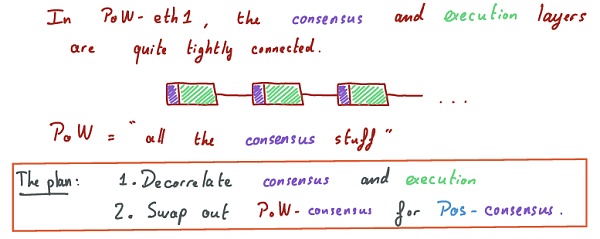 In PoW-eth1, the consensus and execution layers
are quite tightly connected.
...
PoW = "all the consensus stuff"
The plan: 1. Decorrelate consensus and execution
2. Swap out PoW-consensus for Pos-consensus.